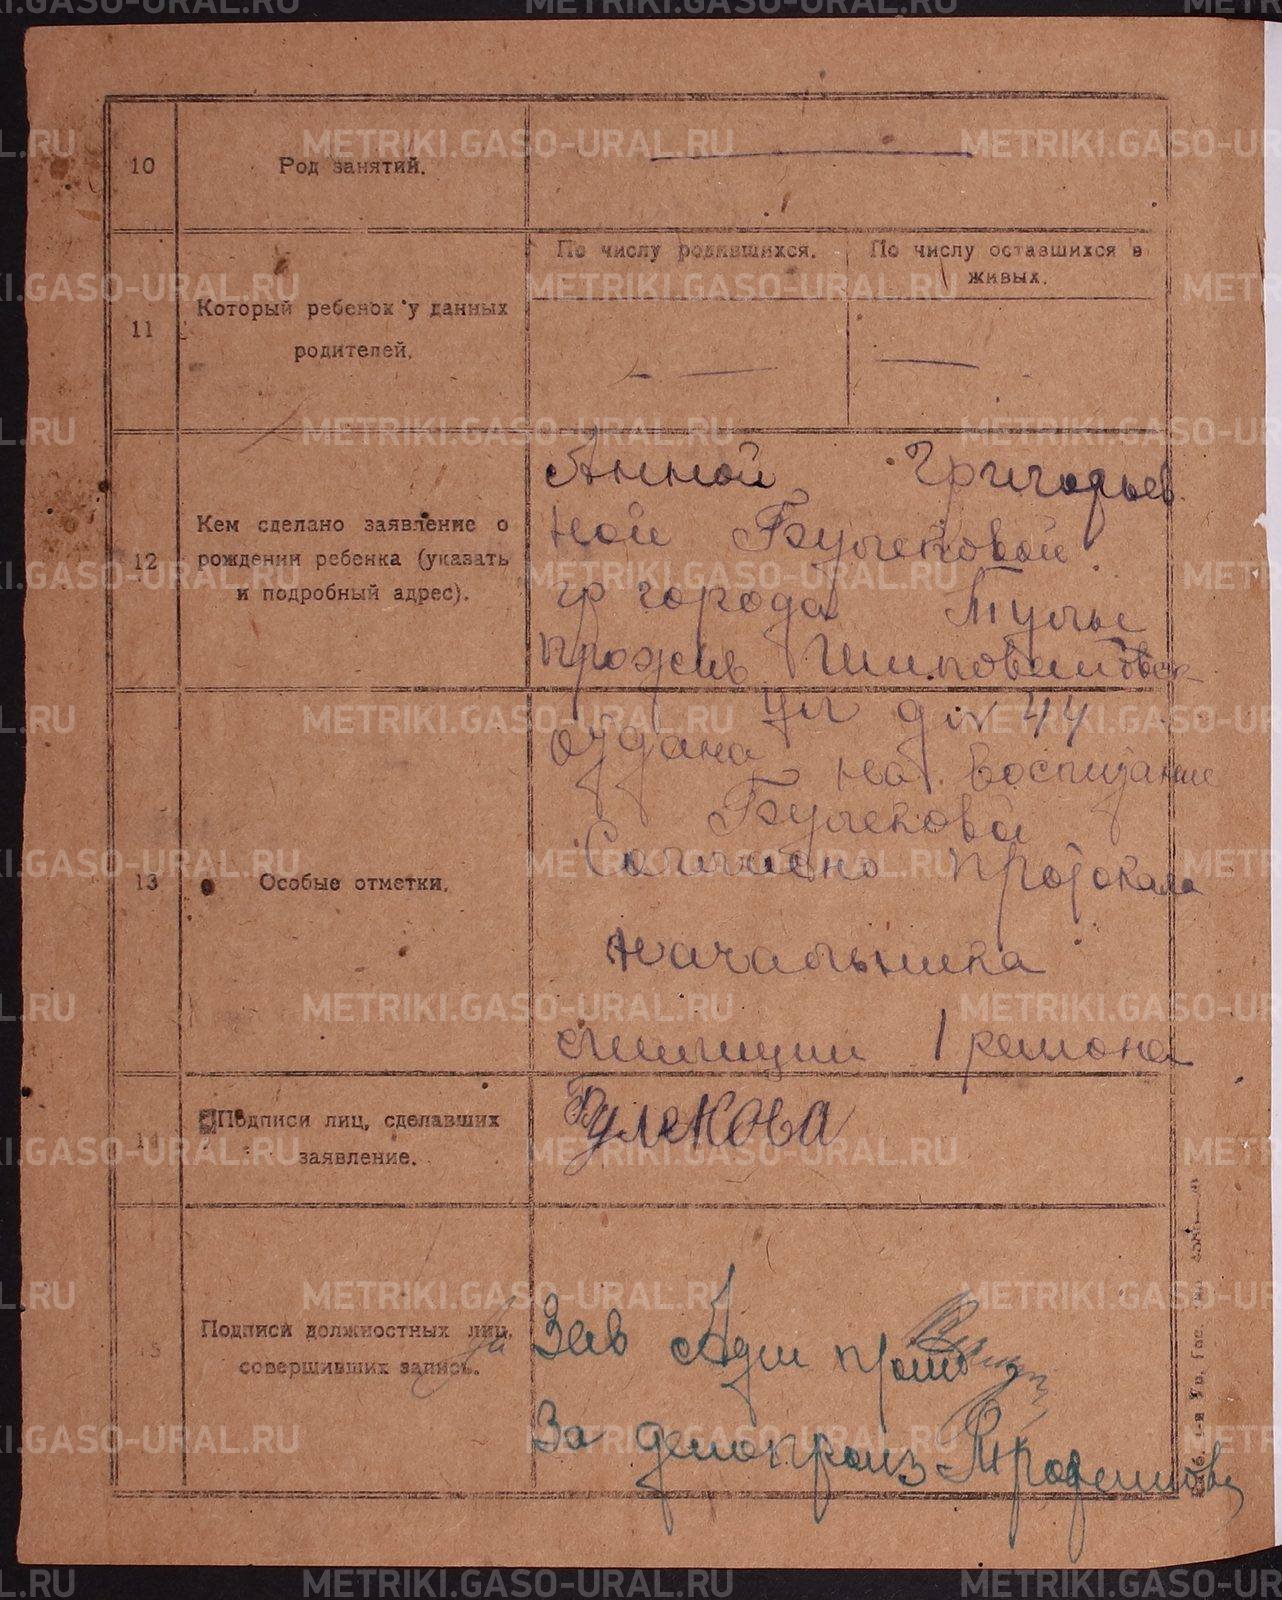 10
Род занятий.
11
Который ребенок у данных
родителей.
По числу родившихся.
По числу оставшихся в
живых.
12
Кем сделано заявление о
рождении ребенка (указать
и подробный адрес).
Анной Григорьев
ной Булековой
гр города Тулы
прожив
ул д № 44
13
Особые отметки.
отдана на воспитание
Булековой
Согласно протокала
начальника
милиции 1 района
14
Подписи лиц, сделавших
заявление.
Булекова
15
Подписи должностных лиц,
совершивших запись.
Зав
За делопроиз
METRIKI.GASO-URAL.RU